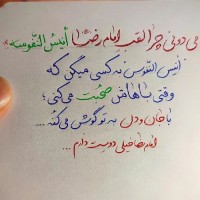 می دونی چرا لقب امام رضا(ع) أنیسُ النّفوسه
أنیسُ النّفوس به کسی میگن که
وقتی باهاش صُحبت می کنی؛
با جان و دل به تو گوش می کنه...
امام طاحبلی دوست دارم...